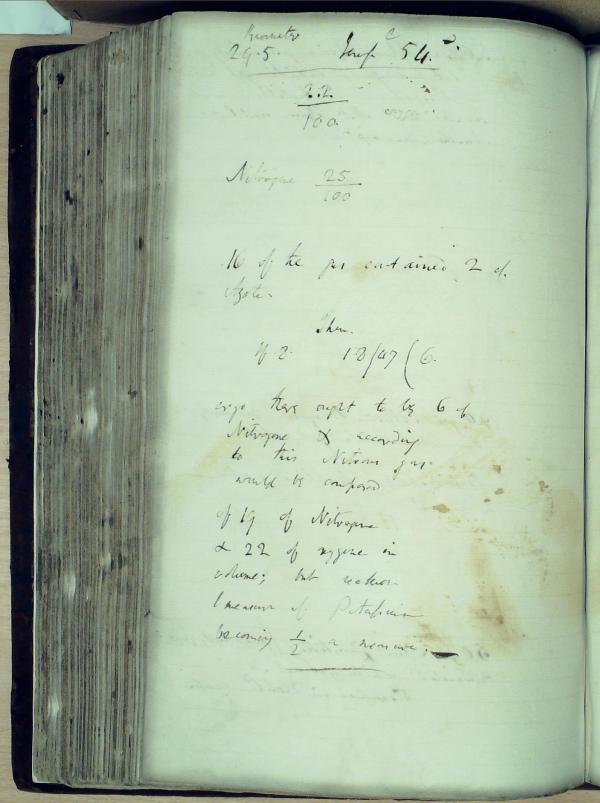 Barometer
29.5. Temp. C 54.
22
100
Nitrogene 25
100
16 of the gas contained 2 of
Azote.
Then.
If 2. 18/47(6.
ergo there ought to be 6 of
Nitrogene & according
to this Nitrous gas
would be composed
of 19 of Nitrogene
& 22 of oxygene in
volume; but
1 measure of Potassium
becoming 1/2 a measure.